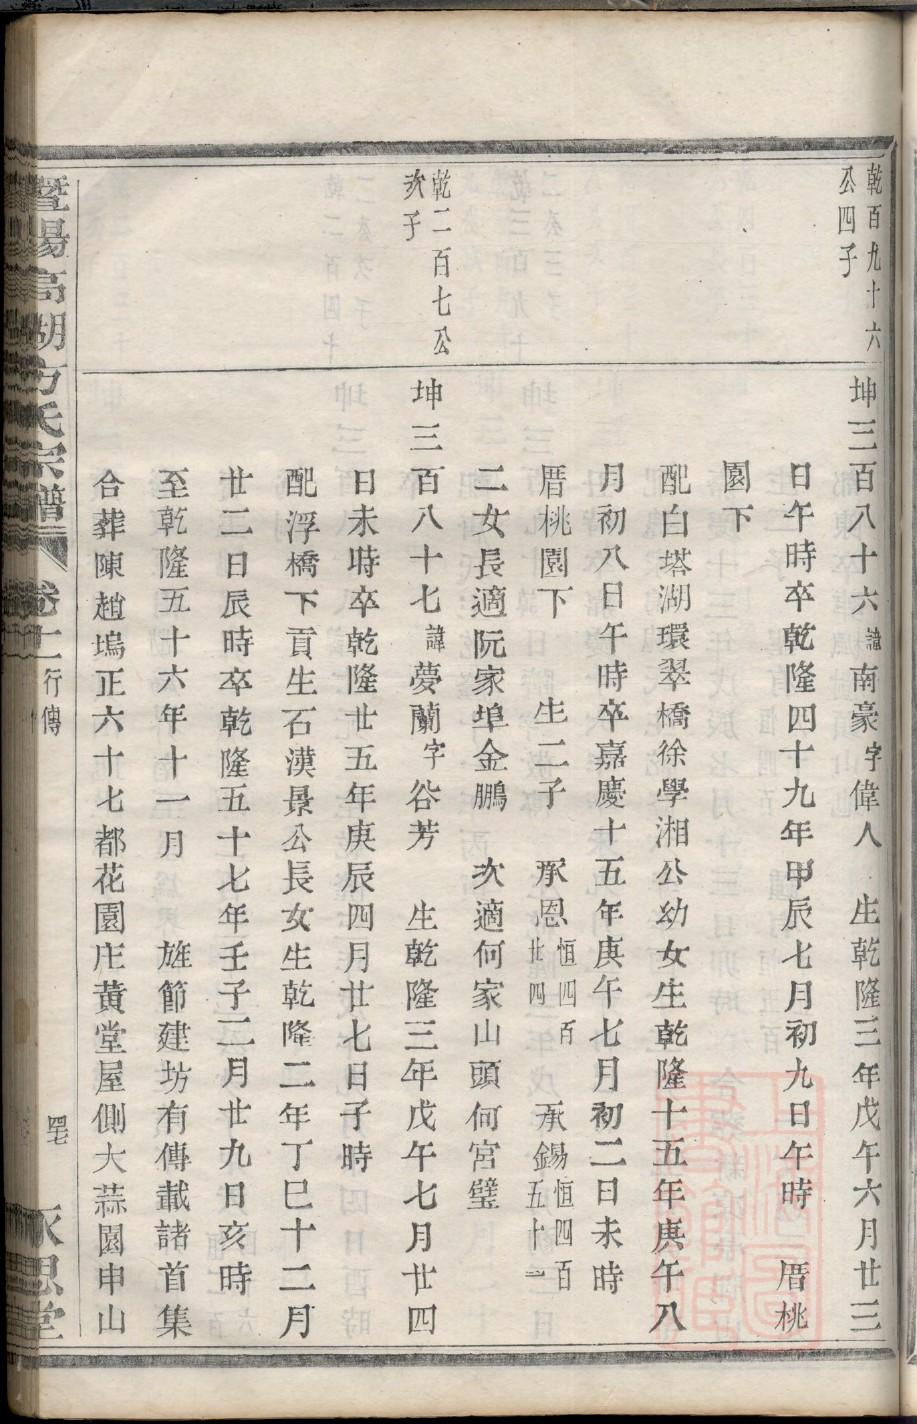 乾百九十六
公四子
坤三百八十六諱南豪字偉人 生乾隆三年戊午六月廿三
日午時卒乾隆四十九年甲辰七月初九日午時 厝桃
園下
配白塔湖環翠橋徐學湘公幼女生乾隆十五年庚午八
月初八日午時卒嘉慶十五年庚午七月初二日未時
厝桃園下 生二子 承恩恒四百廿四 承錫恒四百五十一
二女長適阮家埠金鵬 次適何家山頭何宮璧
乾二百七公
次子
坤三百八十七諱夢蘭字谷芳 生乾隆三年戊午七月廿四
日未時卒乾隆廿五年庚辰四月廿七日子時
配浮橋下貢生石漢景公長女生乾隆二年丁巳十二月
廿二日辰時卒乾隆五十七年壬子二月廿九日亥時
至乾隆五十六年十一月 旌節建坊有傳載諸首集
合葬陳趙塢正六十七都花園庄黃堂屋側大蒜園申山
暨陽高湖方氏宗譜 卷十一 行傳 罕七 永思堂